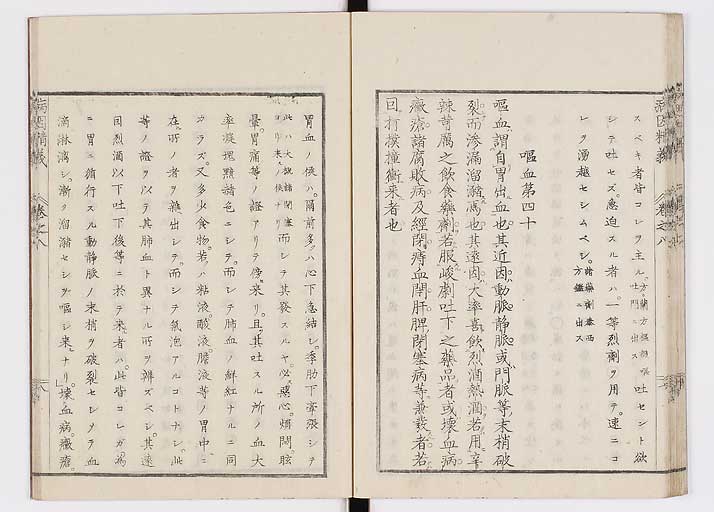 スベキ者皆コレヲ主ル 吐セント欲
シテ吐セズ急迫スル者ハ一等烈剤ヲ用テ速ニコ
レヲ湧越セシムベシ 方鑑ニ出ス
嘔血第四十
嘔血謂自胃出血也其近因動脈静脈或門脈等末梢破
裂而滲漏溜瀦焉也其遠因大率喜飲烈酒熱酒若用辛
辣苛厲之飲食藥劑若服峻劇吐下之藥品者或壊血病
癥瘡諸腐敗病及經閉痔血閉肝脾閉塞病等兼發者若
因打撲撞衝來者也
胃血ノ候ハ爾前多クハ心下急結シ季肋下牽張シテ
而シテ其發スルヤ必ズ惡心煩悶眩
暈胃痛等ノ證アリテ傍來リ且其吐スル所ノ血大
率凝塊黯諸色ニシテ而シテ肺血ノ鮮紅ナルニ同
カラズ又多少食物若クハ粘液酸液膽液等ノ胃中ニ
在ル所ノ者ヲ雜出シテ而シテ氣泡アルコトナシ此
等ノ證ヲ以テ其肺血ト異ナル所ヲ辨ズベシ其遠
因烈酒以下吐下後等ニ於テ來ル者ハ此皆コレガ為
ニ胃ニ循行スル動靜脈ノ末梢ヲ破裂セシメテ血
滴淋漓シ漸ク溜瀦セシヲ嘔シ來ルナリ壊血病癥瘡